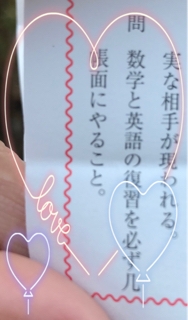 実な相手が現われる。
問 数学と英語の復習を必ず几
帳面にやること。
love